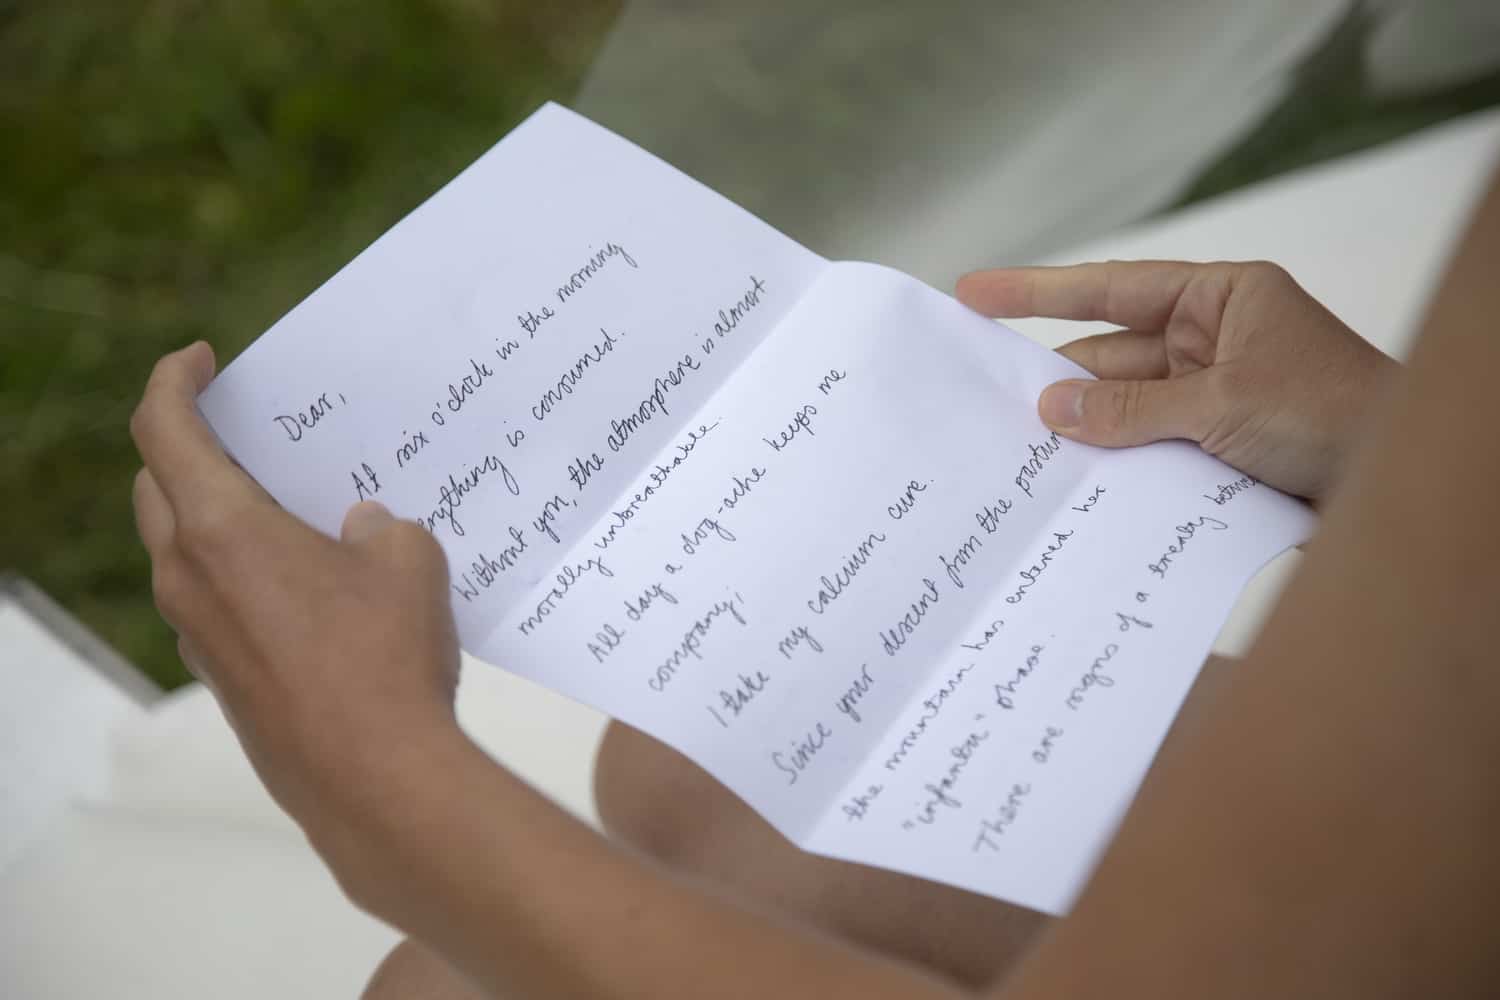 Dear,
At six o'clock in the morning
erything is consumed.
Without you, the atmosphere is almost
morally unbreathable.
All day a dog-ache keeps me
company;
I take my calcium cure.
Since your descent from the pastur
the mountain has entered her
"infanta" phase.
There are signs of a treaty betwee